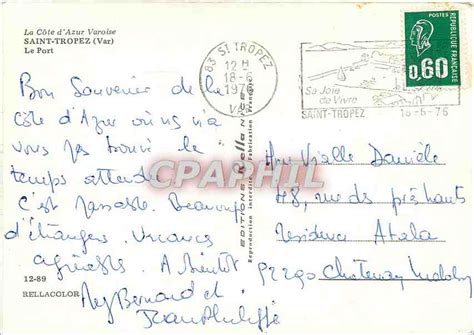 La Côte d'Azur Varoise
SAINT-TROPEZ (Var)
Le Port
83 ST TROPEZ
12 H
18-6
1976
VAR
Sa Joie
de Vivre
SAINT-TROPEZ
18-6-76
POSTES
0,60
REPUBLIQUE FRANÇAISE
Bon Souvenir de la
Côte d'Azur où on a
vous pas trouvé le
temps attendu
C'est Beaucoup
d'étrangers. Vacances
agréables. A bientôt
Bernard et
Jean Philippe
12-89
RELLACOLOR
EDITIONS Rella NICE
Reproduction interdite Fabrication Française
CPAPHIL
Vielle Danièle
48, rue des prés hauts
résidence Atala
92290 Chatenay Malabry